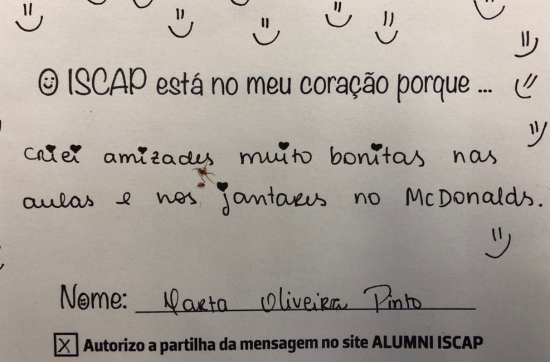 O ISCAP está no meu coração porque ...
criei amizades muito bonitas nas
aulas e nos jantares no McDonalds.
Nome: Marta Oliveira Pinto
X Autorizo a partilha da mensagem no site ALUMNI ISCAP